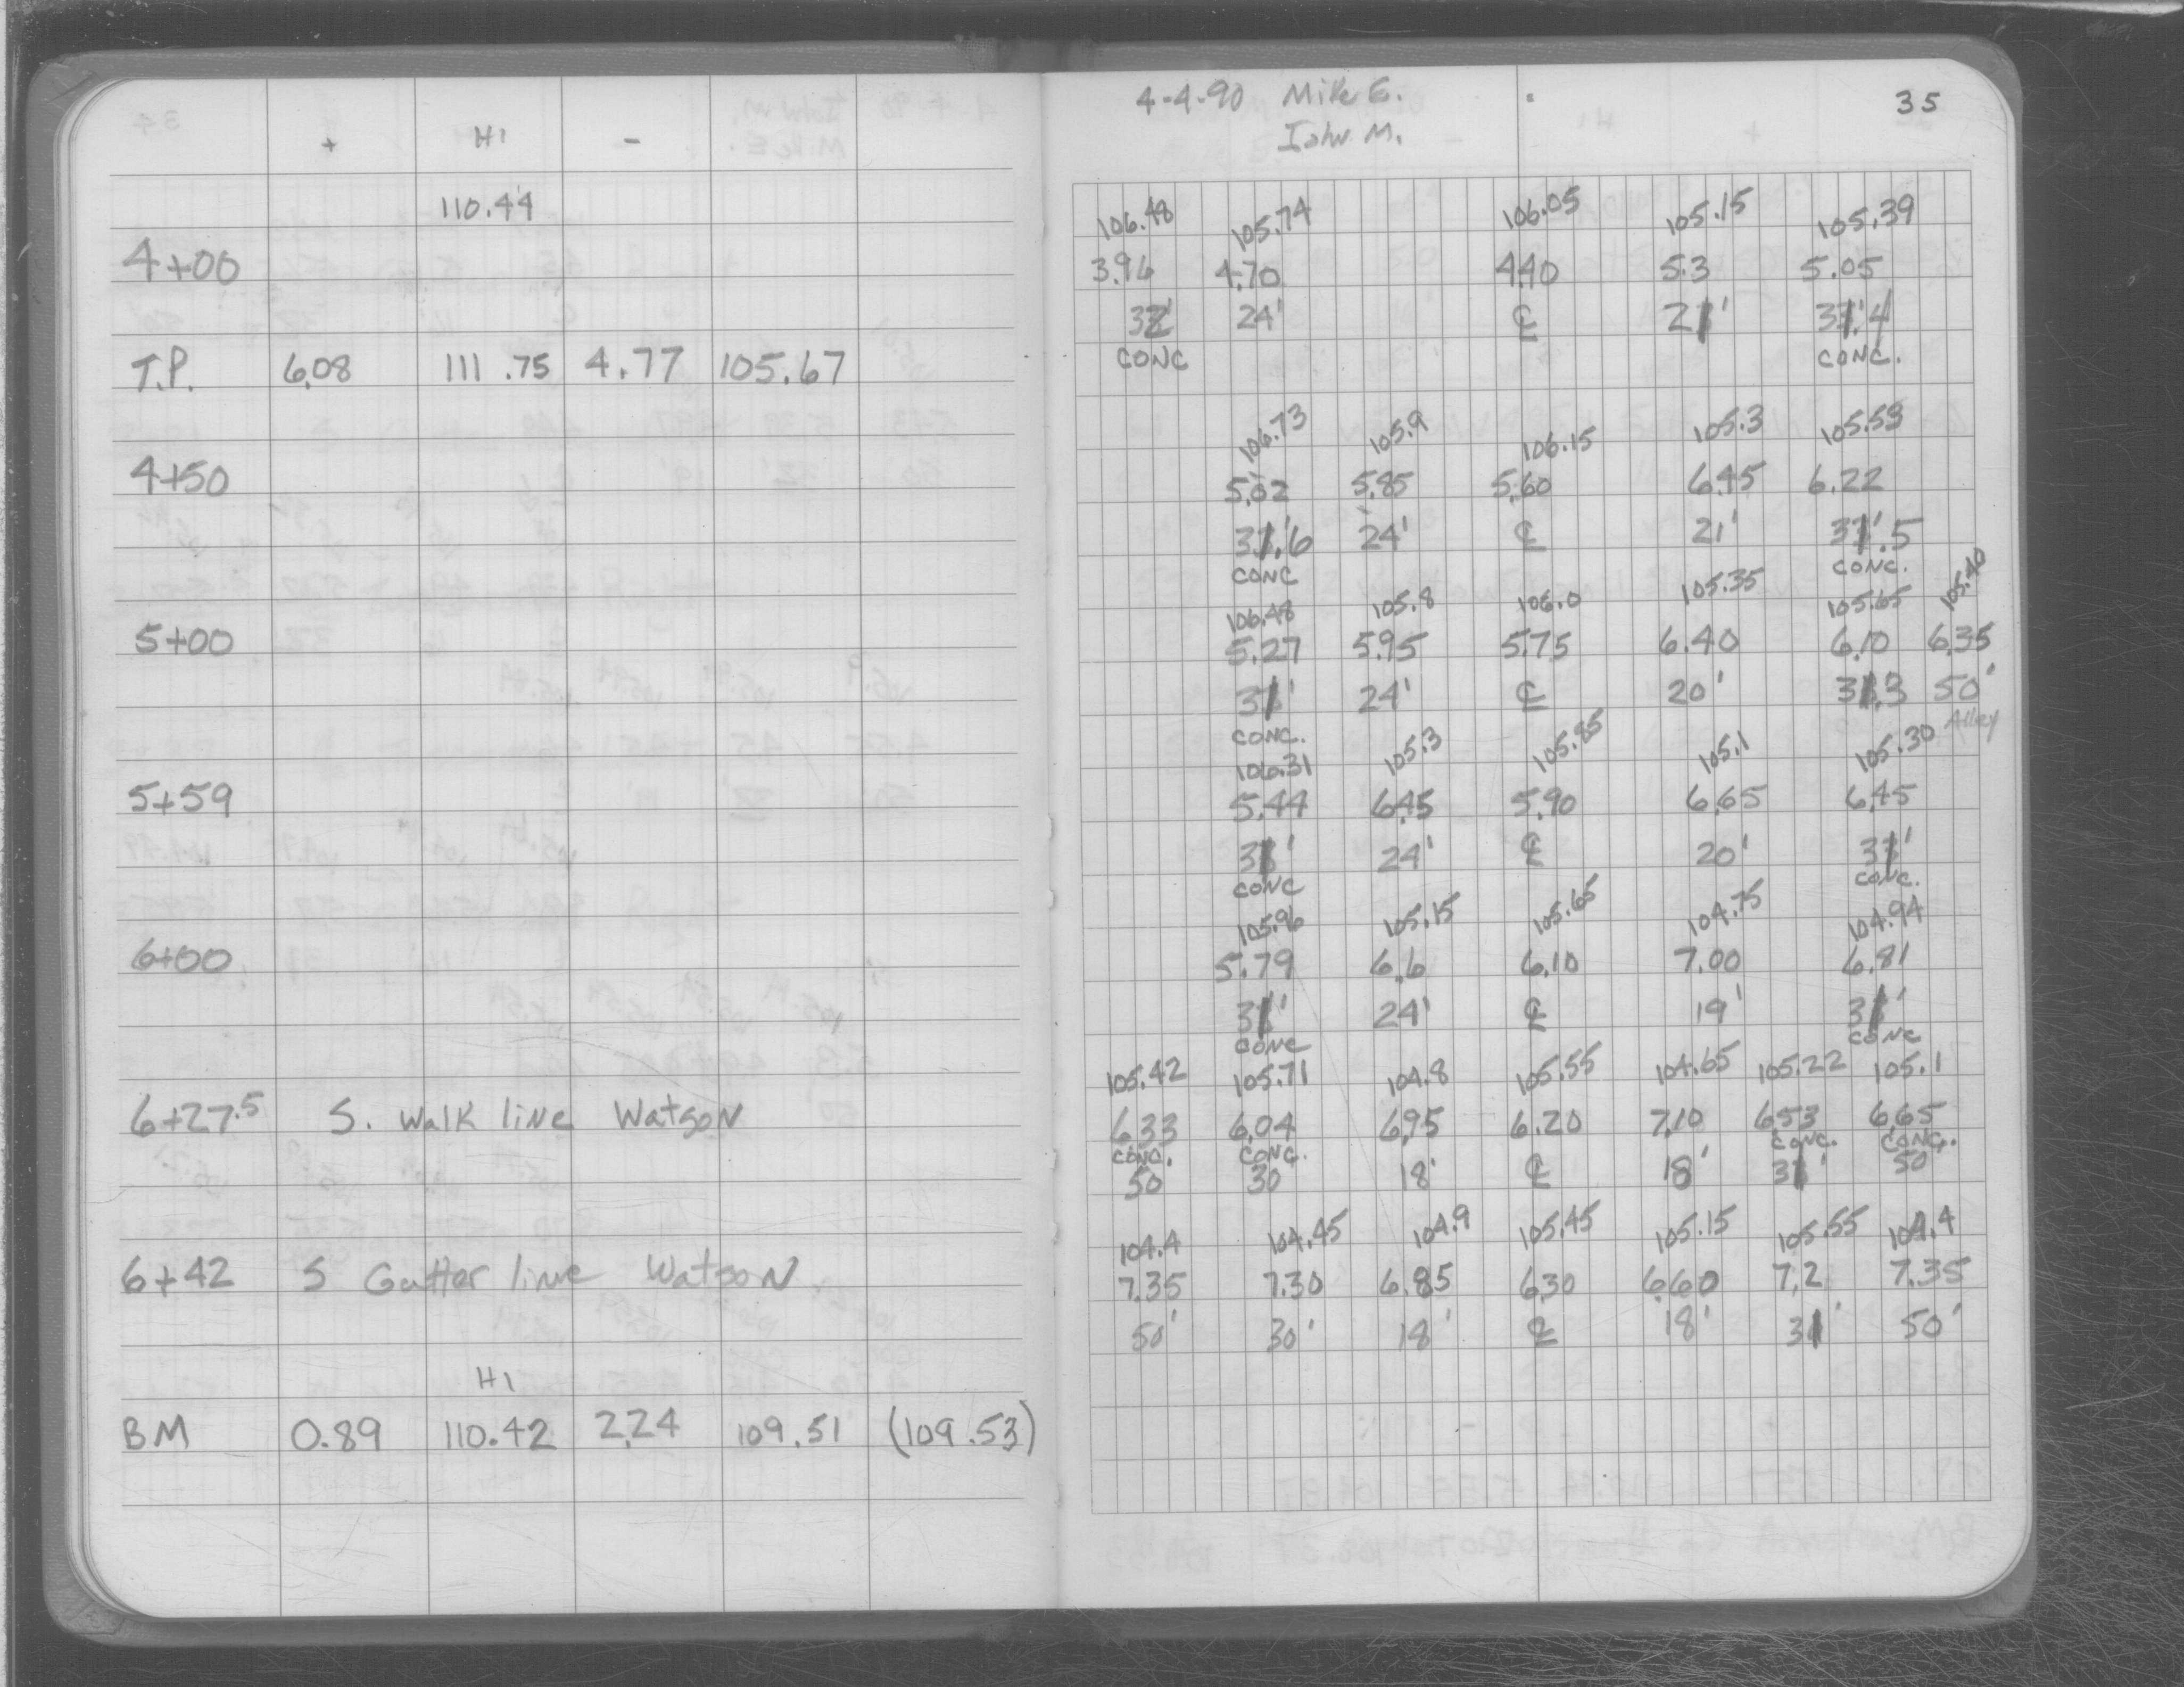 4-4-90 Mike E. 35
John M.
+ HI -
110.44
106.48 105.74 106.05 105.15 105.39
4+00 3.96 4.70 4.40 5.3 5.05
32' 24' ℄ 21' 31.4
CONC CONC.
T.P. 6.08 111.75 4.77 105.67
106.73 105.9 106.15 105.3 105.53
4+50 5.02 5.85 5.60 6.45 6.22
31.6 24' ℄ 21' 31.5
CONC CONC.
106.48 105.8 106.0 105.35 105.65 105.40
5+00 5.27 5.95 5.75 6.40 6.10 6.35
31' 24' ℄ 20' 31.3 50'
CONC. Alley
106.31 105.3 105.85 105.1 105.30
5+59 5.44 6.45 5.90 6.65 6.45
31' 24' ℄ 20' 31'
CONC CONC.
105.96 105.15 105.65 104.75 104.94
6+00 5.79 6.6 6.10 7.00 6.81
31' 24' ℄ 19' 31'
CONC CONC
105.42 105.71 104.8 105.55 104.65 105.22 105.1
6+27.5 S. Walk line Watson 6.33 6.04 6.95 6.20 7.10 6.53 6.65
CONC. CONC. CONC. CONC.
50 30 18' ℄ 18' 31' 50'
104.4 104.45 104.9 105.45 105.15 105.55 104.4
6+42 S Gutter line Watson 7.35 7.30 6.85 6.30 6.60 7.2 7.35
50' 30' 18' ℄ 18' 31' 50'
HI
BM 0.89 110.42 2.24 109.51 (109.53)